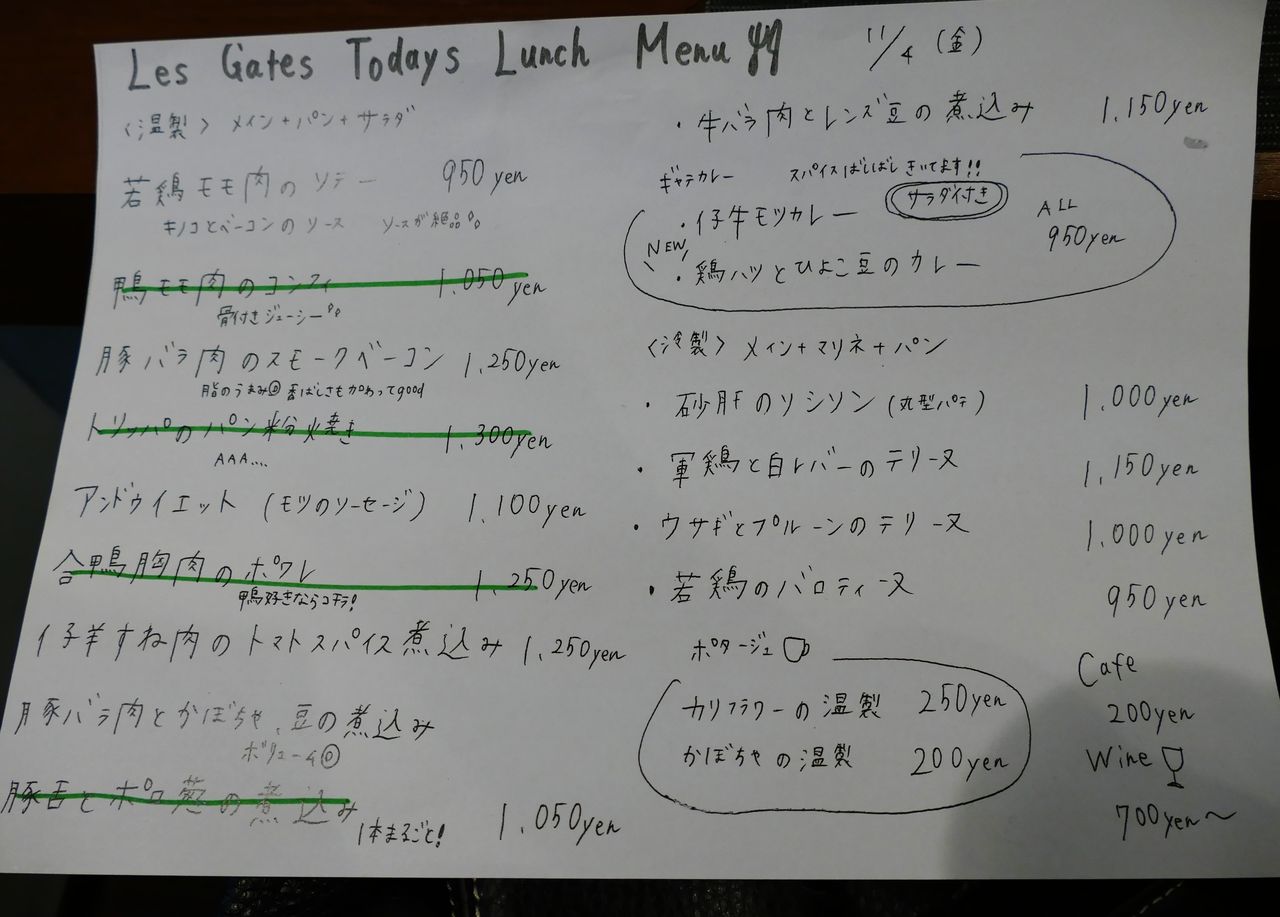 Les Gates Todays Lunch Menu 11/4 (金)
〈温製〉 メイン+パン+サラダ
若鶏モモ肉のソテー 950yen
キノコとベーコンのソース ソースが絶品
鴨モモ肉のコンフィ 1.050yen
骨付きジューシー
豚バラ肉のスモークベーコン 1.250yen
脂のうまみ◎ 香ばしさもかわってgood
トリッパのパン粉焼き 1.300yen
AAA....
アンドゥイエット (モツのソーセージ) 1.100yen
合鴨胸肉のポワレ 1.250yen
鴨好きならコチラ!
仔羊すね肉のトマトスパイス煮込み 1.250yen
豚バラ肉とかぼちゃ、豆の煮込み
ボリューム◎
豚舌とポロ葱の煮込み 1.050yen
1本まるごと!
・牛バラ肉とレンズ豆の煮込み 1.150yen
ギャテカレー スパイスばしばしきいてます!!
サラダ付き
・仔牛モツカレー
ALL
950yen
NEW
・鶏ハツとひよこ豆のカレー
〈冷製〉 メイン+マリネ+パン
・砂肝のソシソン (丸型パテ) 1.000yen
・軍鶏と白レバーのテリーヌ 1.150yen
・ウサギとプルーンのテリーヌ 1.000yen
・若鶏のバロティーヌ 950yen
ポタージュ
カリフラワーの温製 250yen
かぼちゃの温製 200yen
Cafe
200yen
Wine
700yen〜